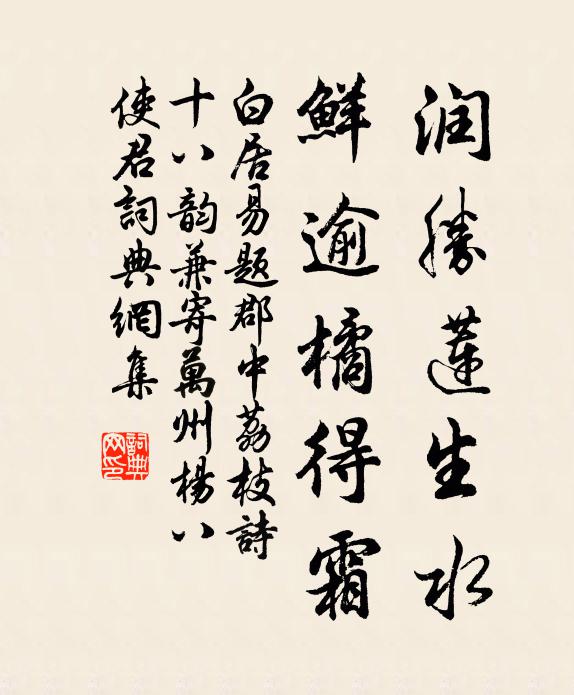 润勝蓮生水
鮮逾橘得霜
白居易题郡中荔枝詩
十八韵兼寄萬州楊八
使君詞典網集
詞典
网印